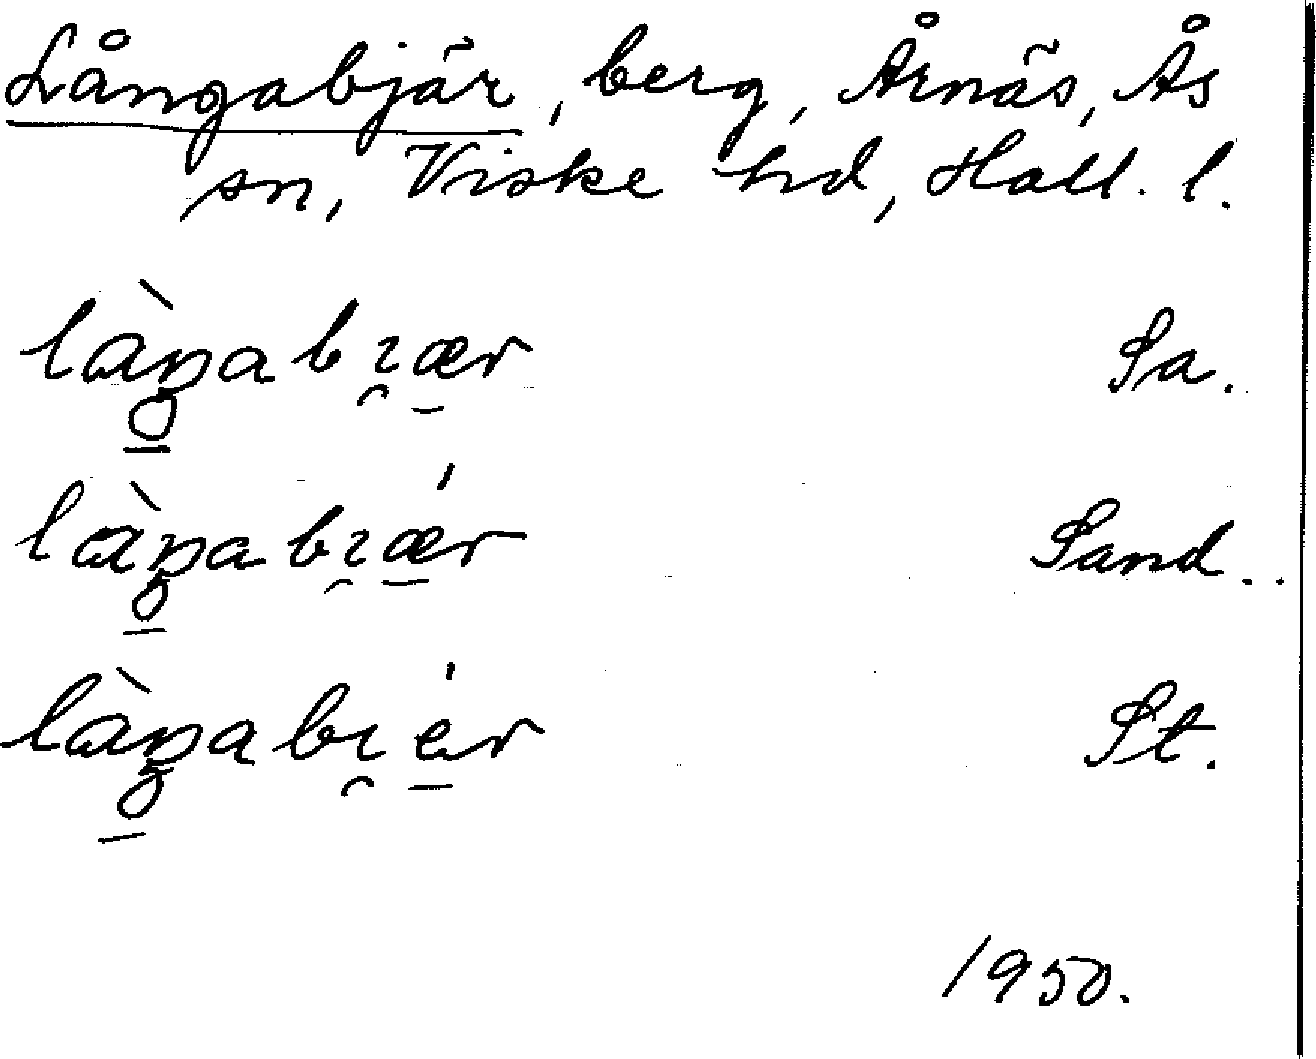 Långabjär, berg, Årnäs, Ås
sn, Viske hd, Hall. l.
là̱ŋabı̯æ̱r Sa.
là̱ŋabı̯ǽ̱r Sand.
là̱ŋabı̯é̱r St.
1950.